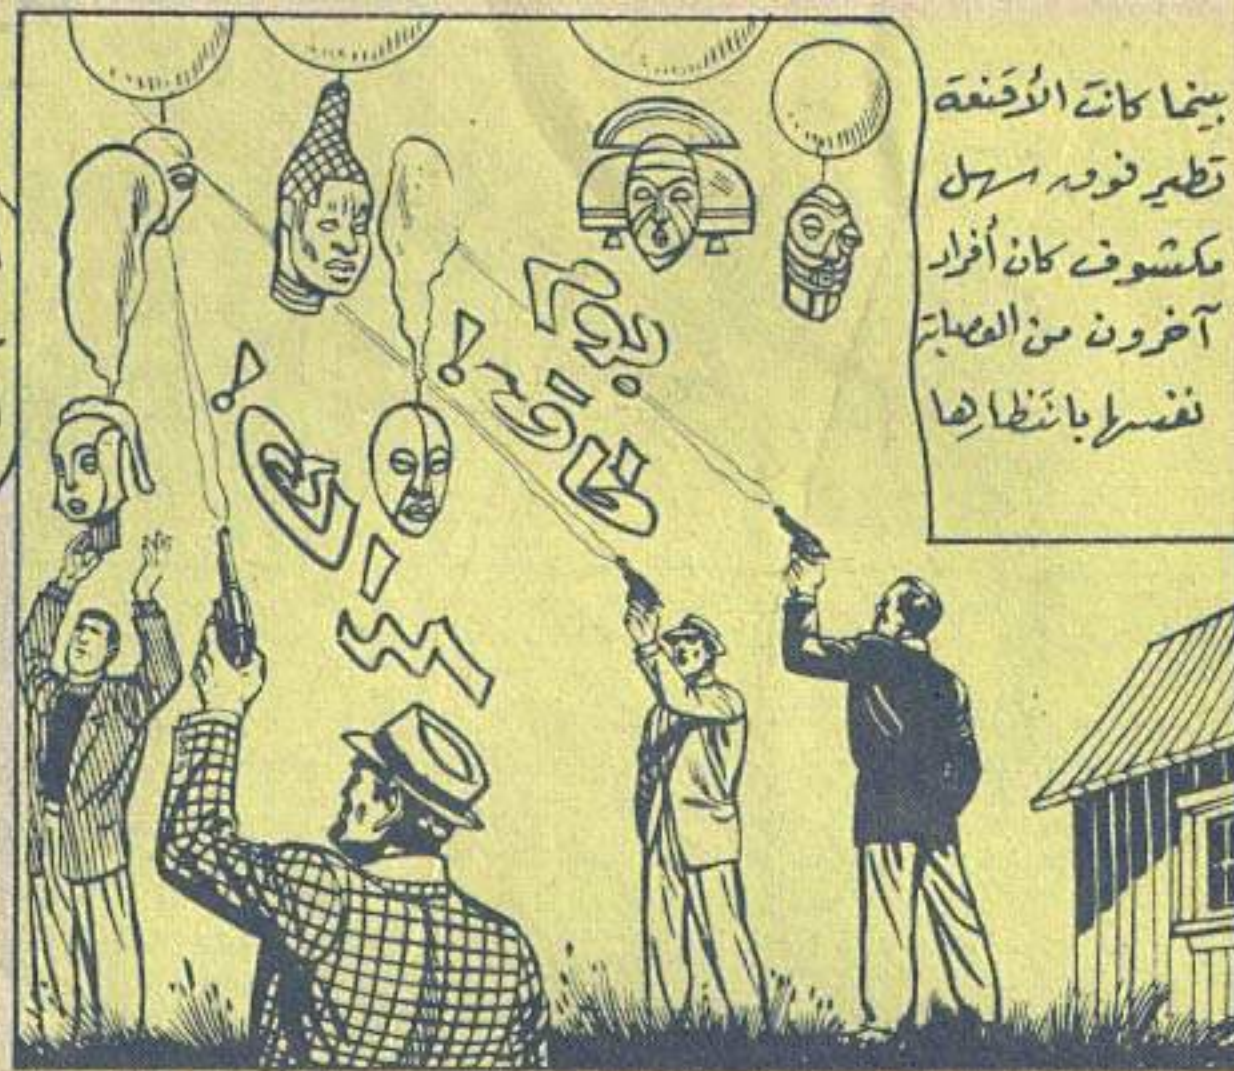 بينما كانت الأقنعة
تطير فوق سهل
مكشوف كان أفراد
آخرون من العصابة
نفسها بانتظارها
بوم
طاق!